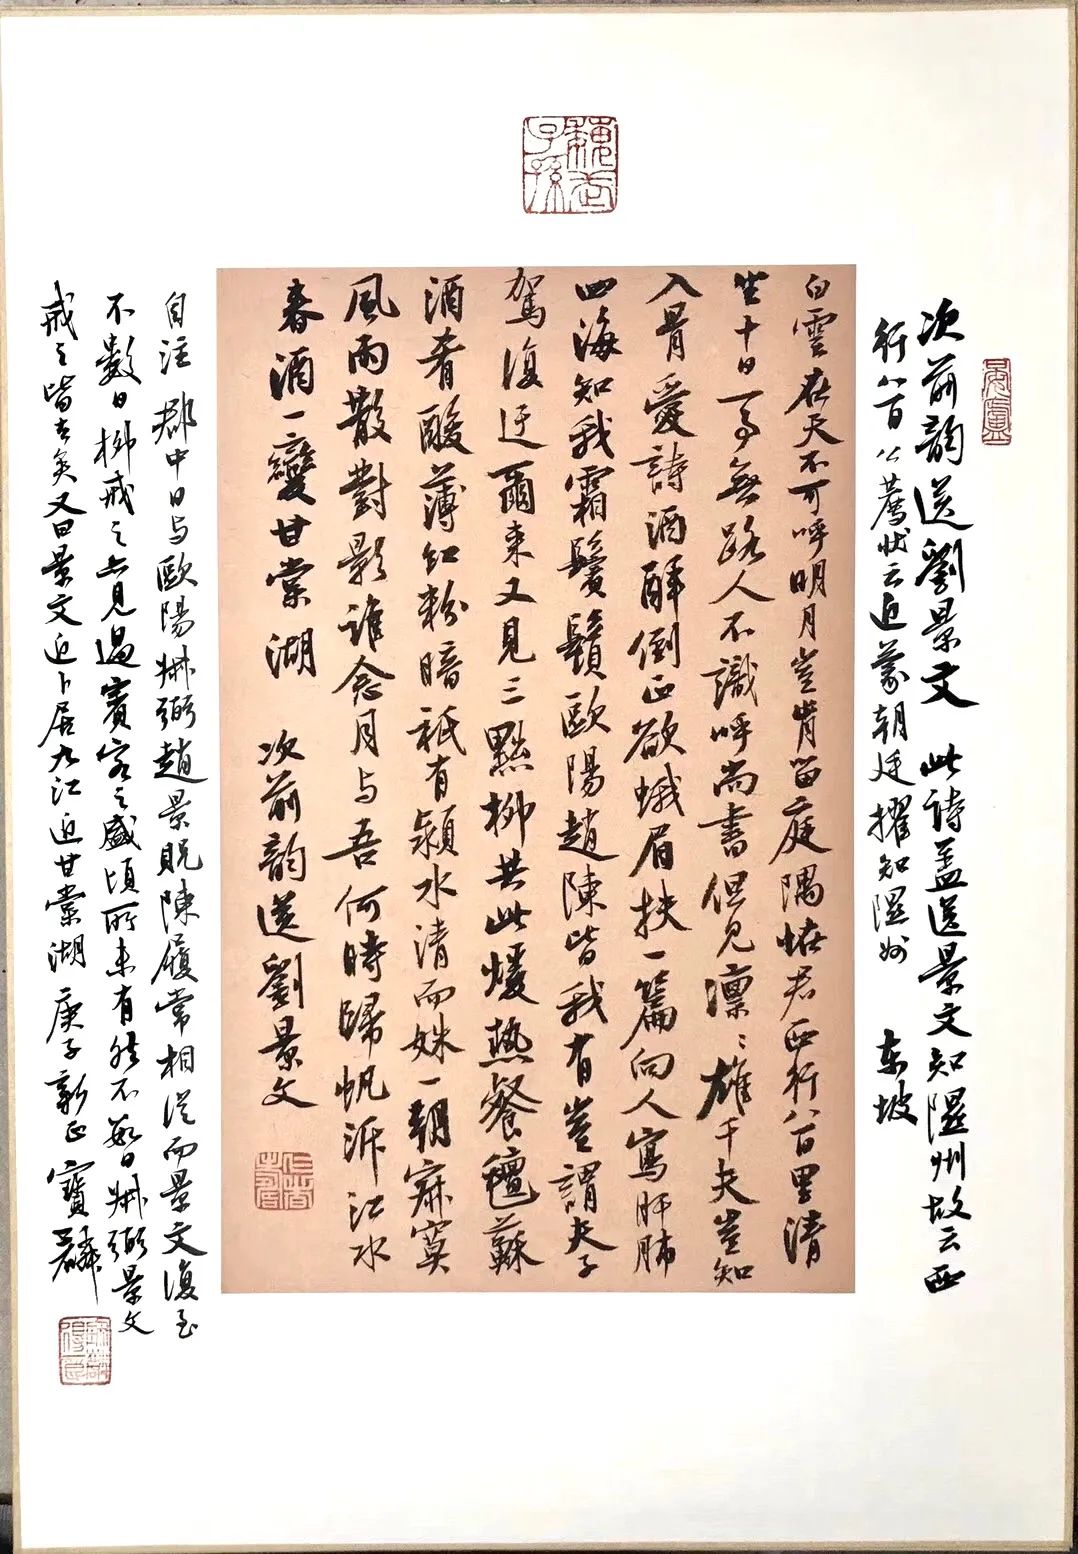 次前韵送劉景文 此詩盖送景文知隰州故云西
行八百 公薦狀云近蒙朝廷擢知隰州 东坡
白雲在天不可呼明月豈肯留庭隅怪君西行八百里清
坐十日一事無路人不識呼尚書但見凛〻雄千夫豈知
入骨愛詩酒醉倒正欲蛾眉扶一篇向人寫肝肺
四海知我霜鬢鬚歐陽趙陳皆我有豈謂夫子
駕復迂爾来又見三黜柳共此煖熱餐氊蘇
酒肴酸薄紅粉暗祇有潁水清而姝一朝寂寞
風雨散對影誰念月与吾何時歸帆泝江水
春酒一變甘棠湖 次前韵送劉景文
自注 郡中日与歐陽叔弼趙景貺陳履常相從而景文復至
不數日柳戒之亦見過賓客之盛頃所未有然不数日叔弼景文
戒之皆去矣又曰景文近卜居九江近甘棠湖 庚子新正 寶麟
子孫